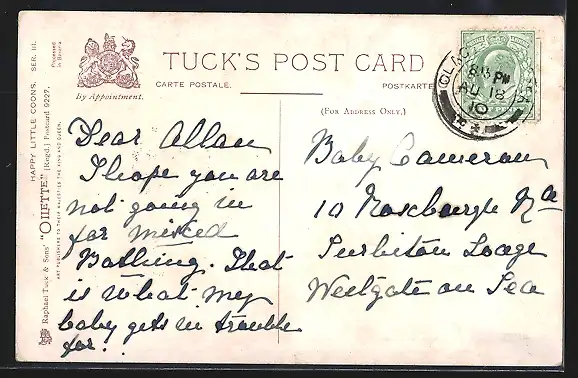 TUCK'S POST CARD
CARTE POSTALE.
POSTKARTE
By Appointment.
(FOR ADDRESS ONLY.)
HAPPY LITTLE COONS. SER. III.
Raphael Tuck & Sons' "OILETTE" [Regd.] Postcard 9227.
ART PUBLISHERS TO THEIR MAJESTIES THE KING AND QUEEN.
Processed in Bavaria
8 15 PM
AU 18
10
Dear Allan
I hope you are
not going in
for mixed
Bathing. That
is what my
baby gets in trouble
for.
Baby Cameron
10 Roxburgh Rd
Surbiton Lodge
Westgate on Sea